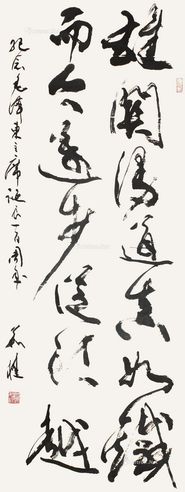 雄关漫道真如铁
而今迈步从头越
纪念毛泽东主席诞辰一百周年